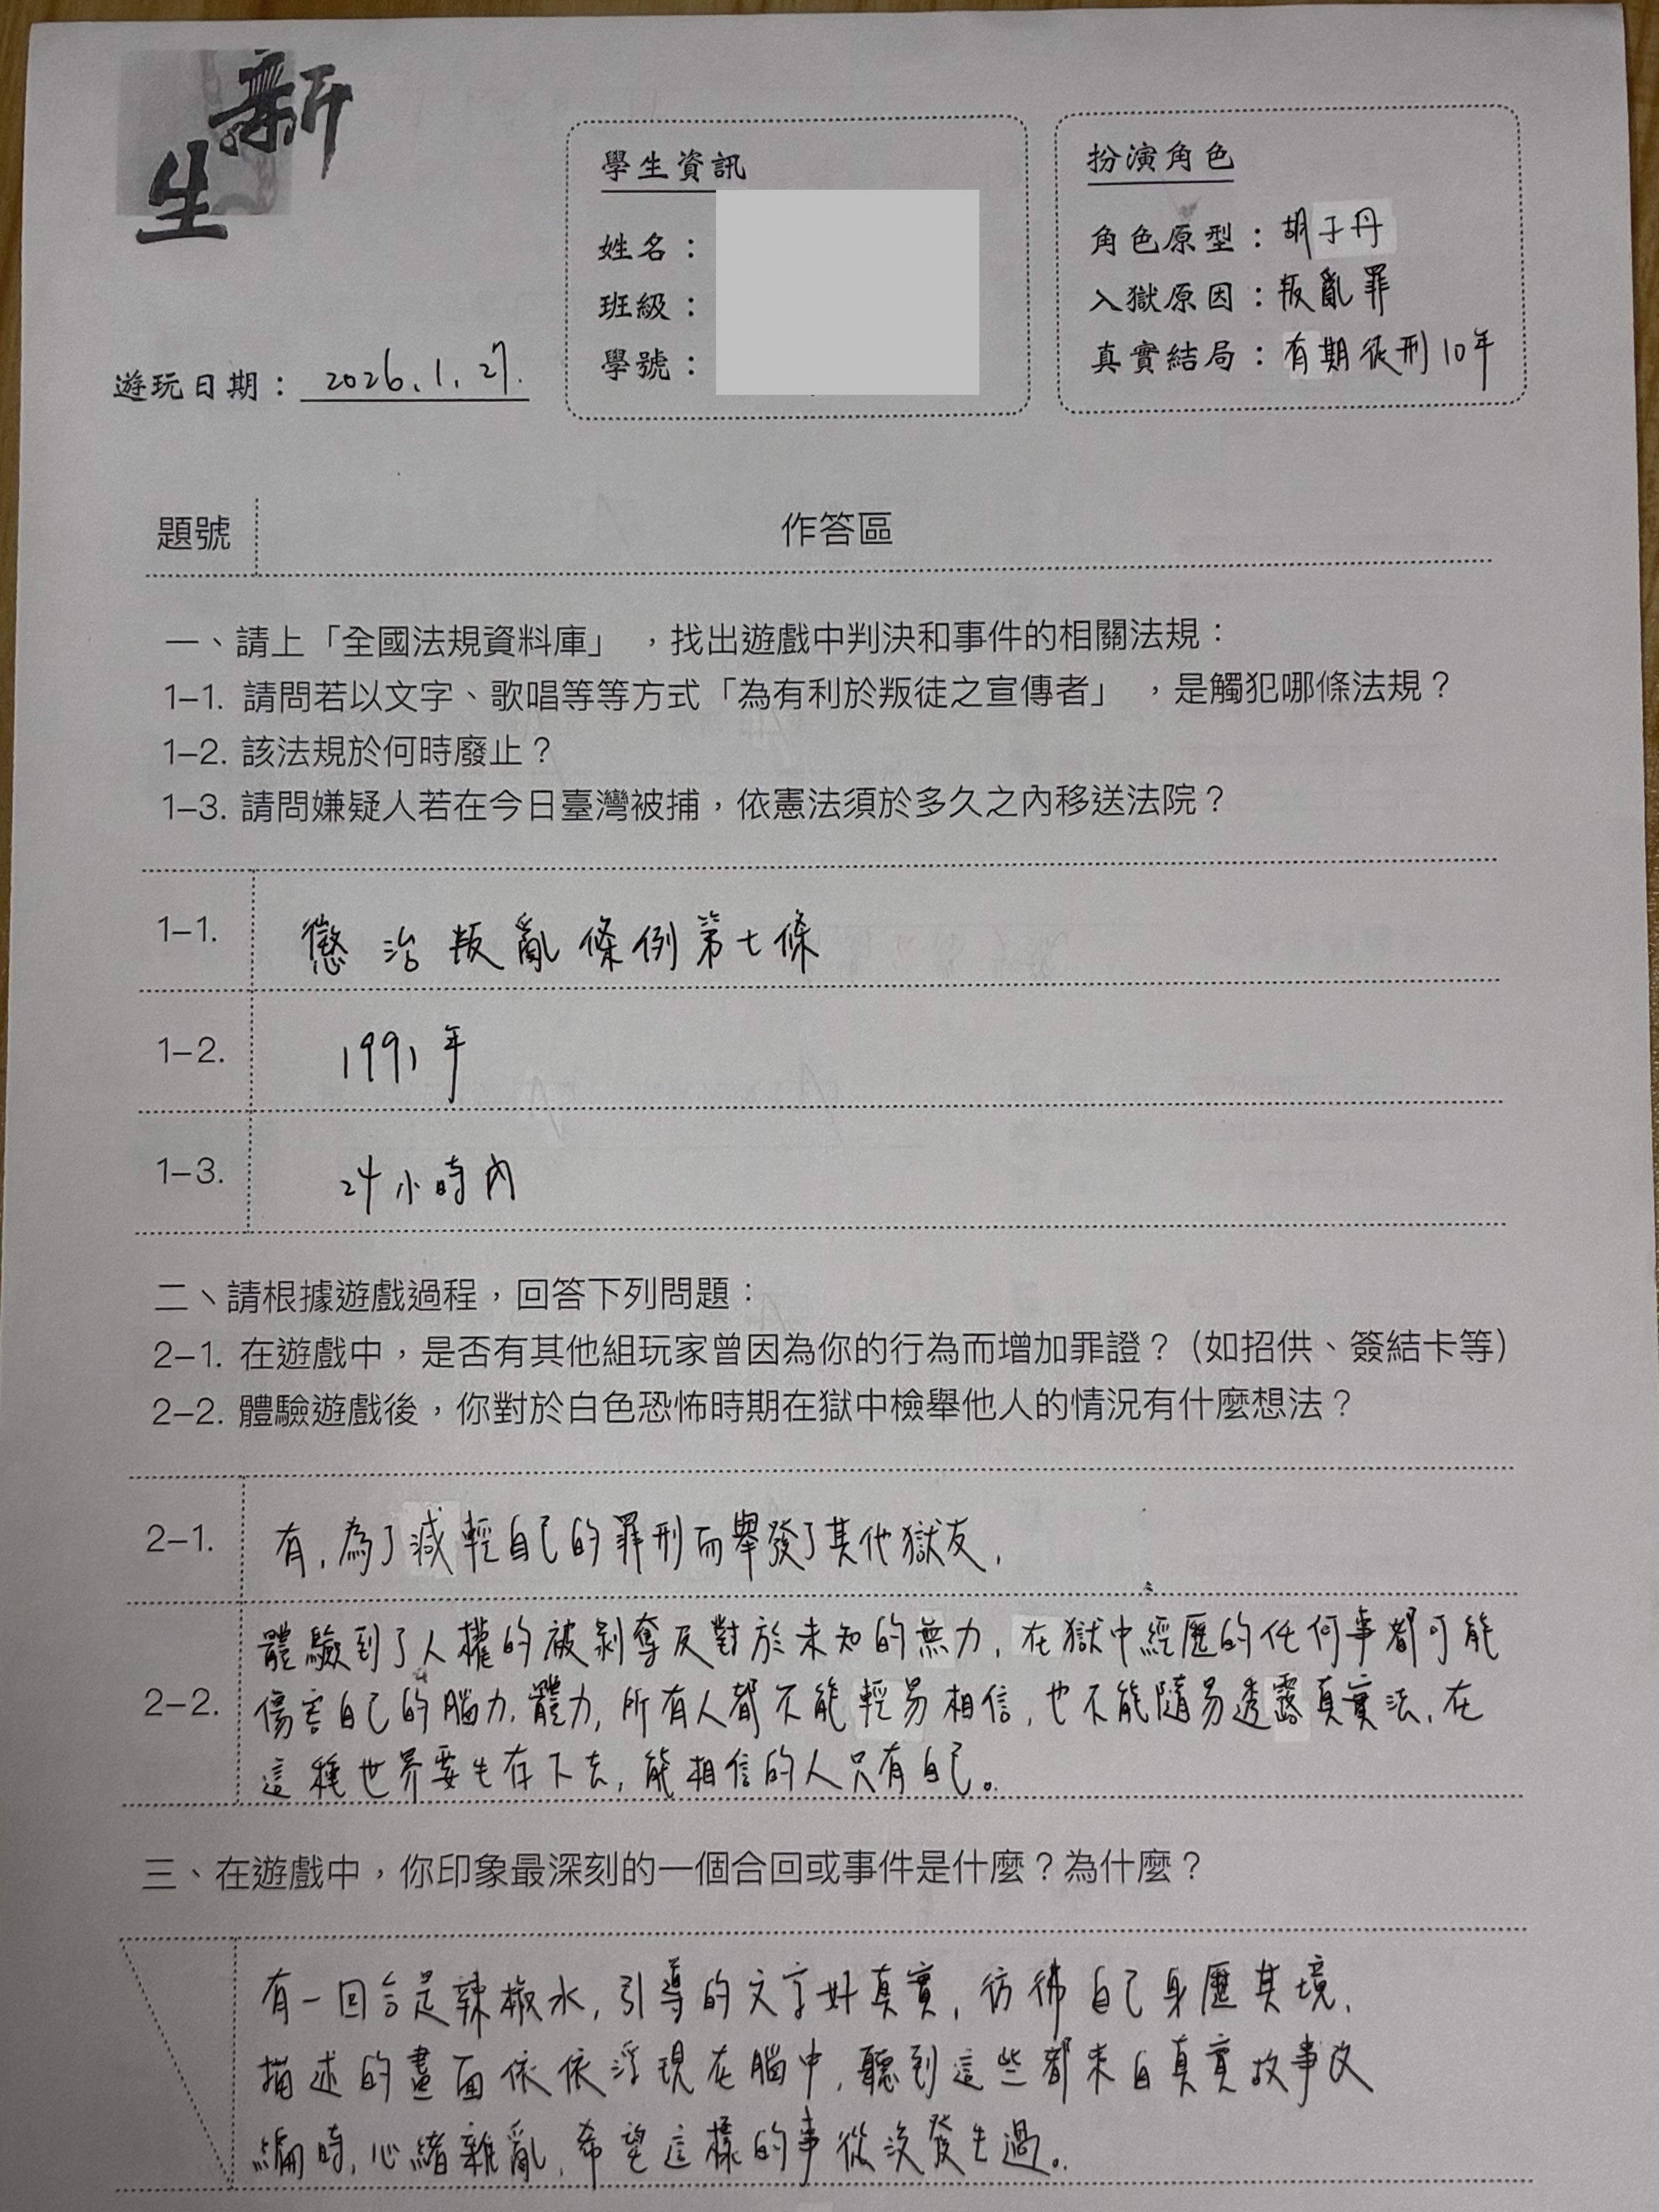 新生
學生資訊
姓名：
班級：
學號：
扮演角色
角色原型：胡子丹
入獄原因：叛亂罪
真實結局：有期徒刑10年
遊玩日期：2026.1.27.
題號 作答區
一、請上「全國法規資料庫」，找出遊戲中判決和事件的相關法規：
1-1. 請問若以文字、歌唱等等方式「為有利於叛徒之宣傳者」，是觸犯哪條法規？
1-2. 該法規於何時廢止？
1-3. 請問嫌疑人若在今日臺灣被捕，依憲法須於多久之內移送法院？
1-1. 懲治叛亂條例第七條
1-2. 1991年
1-3. 24小時內
二、請根據遊戲過程，回答下列問題：
2-1. 在遊戲中，是否有其他組玩家曾因為你的行為而增加罪證？（如招供、簽結卡等）
2-2. 體驗遊戲後，你對於白色恐怖時期在獄中檢舉他人的情況有什麼想法？
2-1. 有，為了減輕自己的罪刑而舉發了其他獄友，
體驗到了人權的被剝奪反對於未知的無力，在獄中經歷的任何事都可能
2-2. 傷害自己的腦力、體力，所有人都不能輕易相信，也不能隨易透露真實法，在
這種世界要生存下去，能相信的人只有自己。
三、在遊戲中，你印象最深刻的一個合回或事件是什麼？為什麼？
有一回合是辣椒水，引導的文字好真實，彷彿自己身歷其境，
描述的畫面依依浮現在腦中，聽到這些都來自真實故事改
編時，心緒雜亂，希望這樣的事從沒發生過。